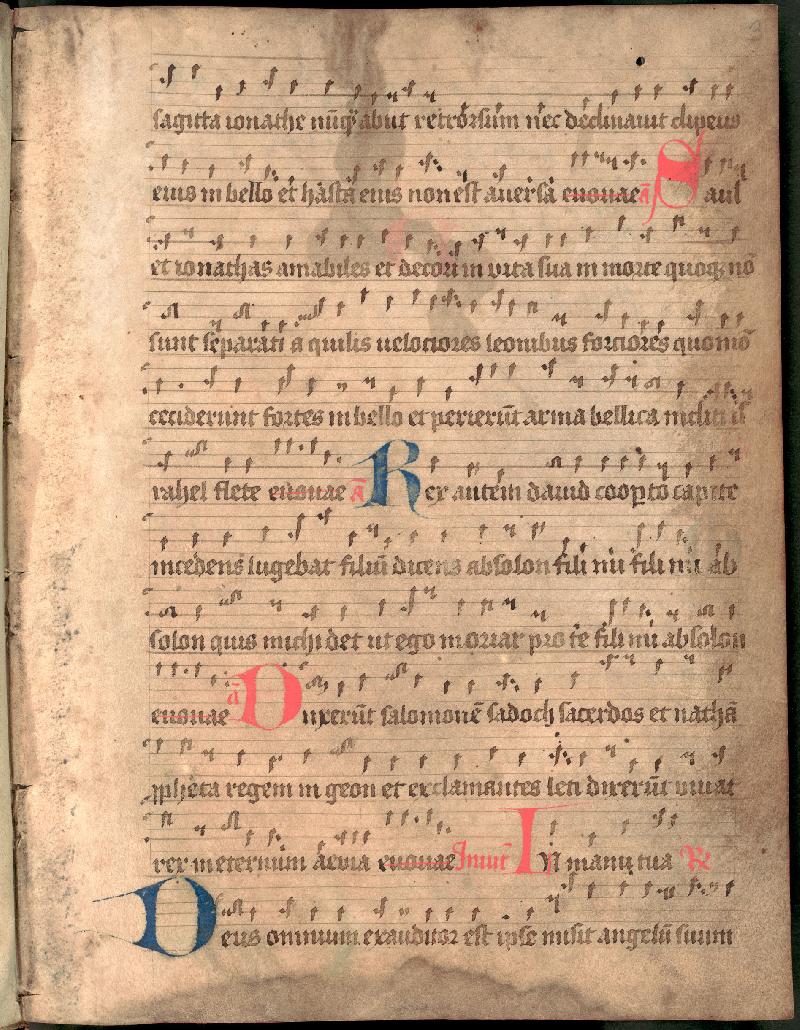 sagitta ionathe nūq̄ abiit retrorsum nec declinauit clipeus
eius in bello et hasta eius non est auersa euouae ā Saul
et ionathas amabiles et decori in uita sua in morte quoq; nō
sunt separati a quilis uelociores leonibus forciores quomō
ceciderunt fortes in bello et perierūt arma bellica
rahel flete euouae ā Rex autem dauid coopto capite
incedens lugebat filiū dicens absolon fili mi fili mi ab
solon quis michi det ut ego moriar pro te fili mi absolon
euouae ā Dnxerūt salomonē sadoch sacerdos et nathā
ppheta regem in geon et exclamantes leti dixerūt uiuat
rex in eternum aeuia euouae Inuit̄ In manu tua R
Deus omnium exauditor est ipse misit angelū suum